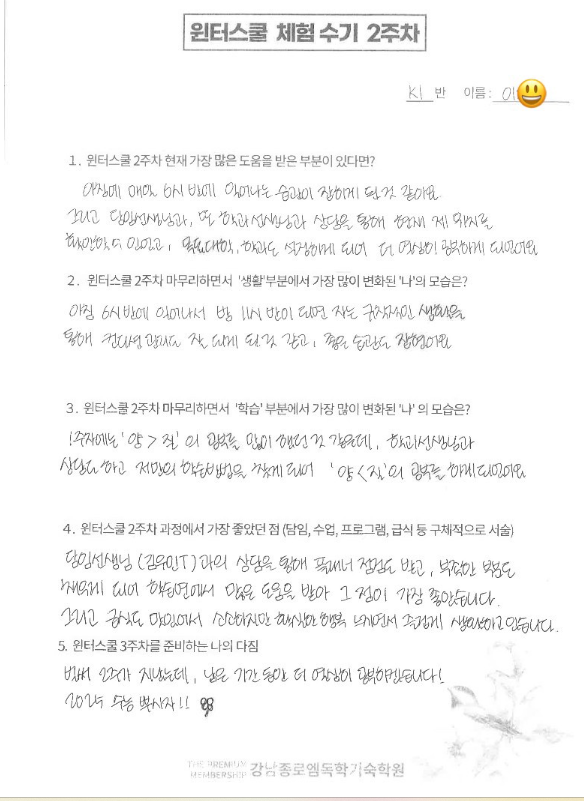 윈터스쿨 체험 수기 2주차
K1 반 이름 : 이
1. 윈터스쿨 2주차 현재 가장 많은 도움을 받은 부분이 있다면?
아침에 매일 6시 반에 일어나는 습관이 잡히게 된 것 같아요.
그리고 담임선생님과, 또 학과선생님과 상담을 통해 현재 제 위치를
확인하고 있고, 목표대학, 학과도 설정하게 되어 더 열심히 공부하게 되었어요
2. 윈터스쿨 2주차 마무리하면서 '생활'부분에서 가장 많이 변화된 '나'의 모습은?
아침 6시 반에 일어나서 밤 11시 반이 되면 자는 규칙적인 생활을
통해 컨디션 관리도 잘 되게 된 것 같고, 좋은 습관도 잡혔어요
3. 윈터스쿨 2주차 마무리하면서 '학습' 부분에서 가장 많이 변화된 '나' 의 모습은?
1주차에는 '양 > 질' 의 공부를 많이 했던 것 같은데, 학과선생님과
상담도 하고 저만의 학습방법을 찾게 되어 '양 < 질'의 공부를 하게 되었어요
4. 윈터스쿨 2주차 과정에서 가장 좋았던 점 (담임, 수업, 프로그램, 급식 등 구체적으로 서술)
담임선생님 (김유민T) 과의 상담을 통해 플래너 점검도 받고, 부족한 부분도
채우게 되어 학습면에서 많은 도움을 받아 그 점이 가장 좋았습니다.
그리고 급식도 맛있어서 소소하지만 확실한 행복 느끼면서 즐겁게 생활하고 있습니다.
5. 윈터스쿨 3주차를 준비하는 나의 다짐
벌써 2주가 지났는데, 남은 기간 동안 더 열심히 공부하겠습니다!
2025 수능 뿌시자!!
THE PREMIUM
MEMBERSHIP 강남종로엠독학기숙학원